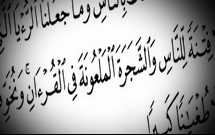 بِٱلنَّاسِ وَمَا جَعَلْنَا ٱلرُّءْيَا ٱلَّ
فِتْنَةً لِّلنَّاسِ وَٱلشَّجَرَةَ ٱلْمَلْعُونَةَ فِى ٱلْقُرْءَانِ ۚ وَنُخَوِّ
طُغْيَٰنًا كَبِيرًا